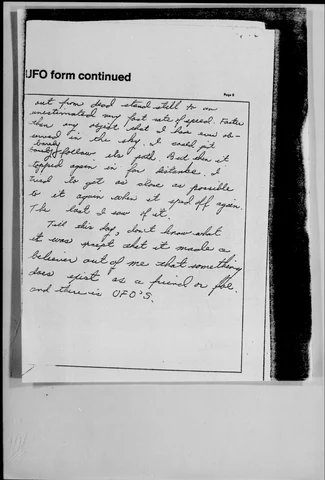 UFO form continued
Page 8
out from dead stand still to an
unestimated very fast rate of speed. Faster
then any object that I have ever ob-
served in the sky. I could just
barely
barely follow its path. But then it
stopped again in far distance. I
tried to get as close as possible
to it again when it sped off again.
The last I saw of it.
Till this day, don't know what
it was except that it made a
believer out of me that something
does exist as a friend or foe.
and there is UFO'S.